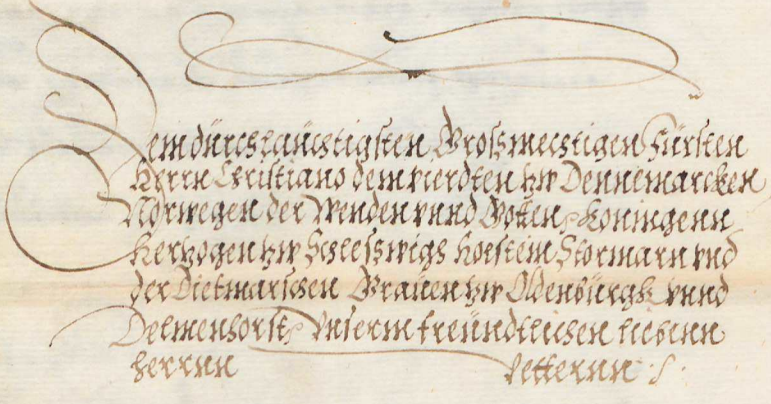 Dem dürchläuchtigsten Großmechtigen Fürsten
Herrn Christiano dem vierdten zw Dennemarcken
Norwegen der Wenden vnnd Gotten, Koningenn
Hertzogen zw Schleßwigh Holstein Stormarn vnd
der Dietmarschen Graüen zw Oldenbürgk vnnd
Delmenhorst, Vnserm freündtlichen liebenn
Herrnn Vetternn